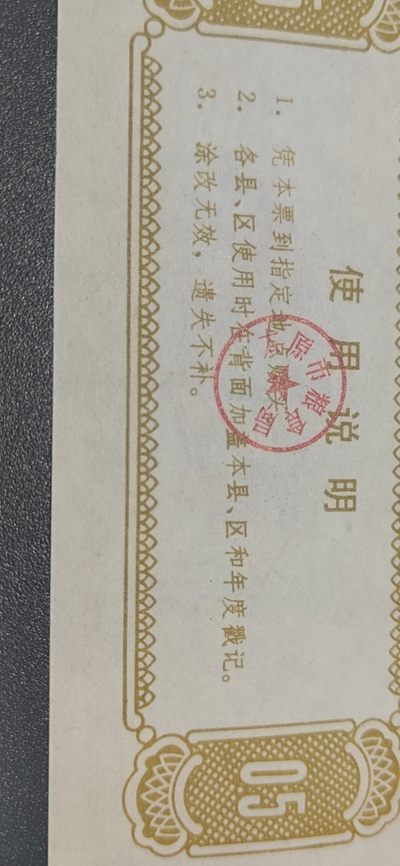 使用说明
1. 凭本票到指定地点购买
2. 各县、区使用时在背面加盖本县、区和年度戳记。
3. 涂改无效，遗失不补。
原市粮食局
05